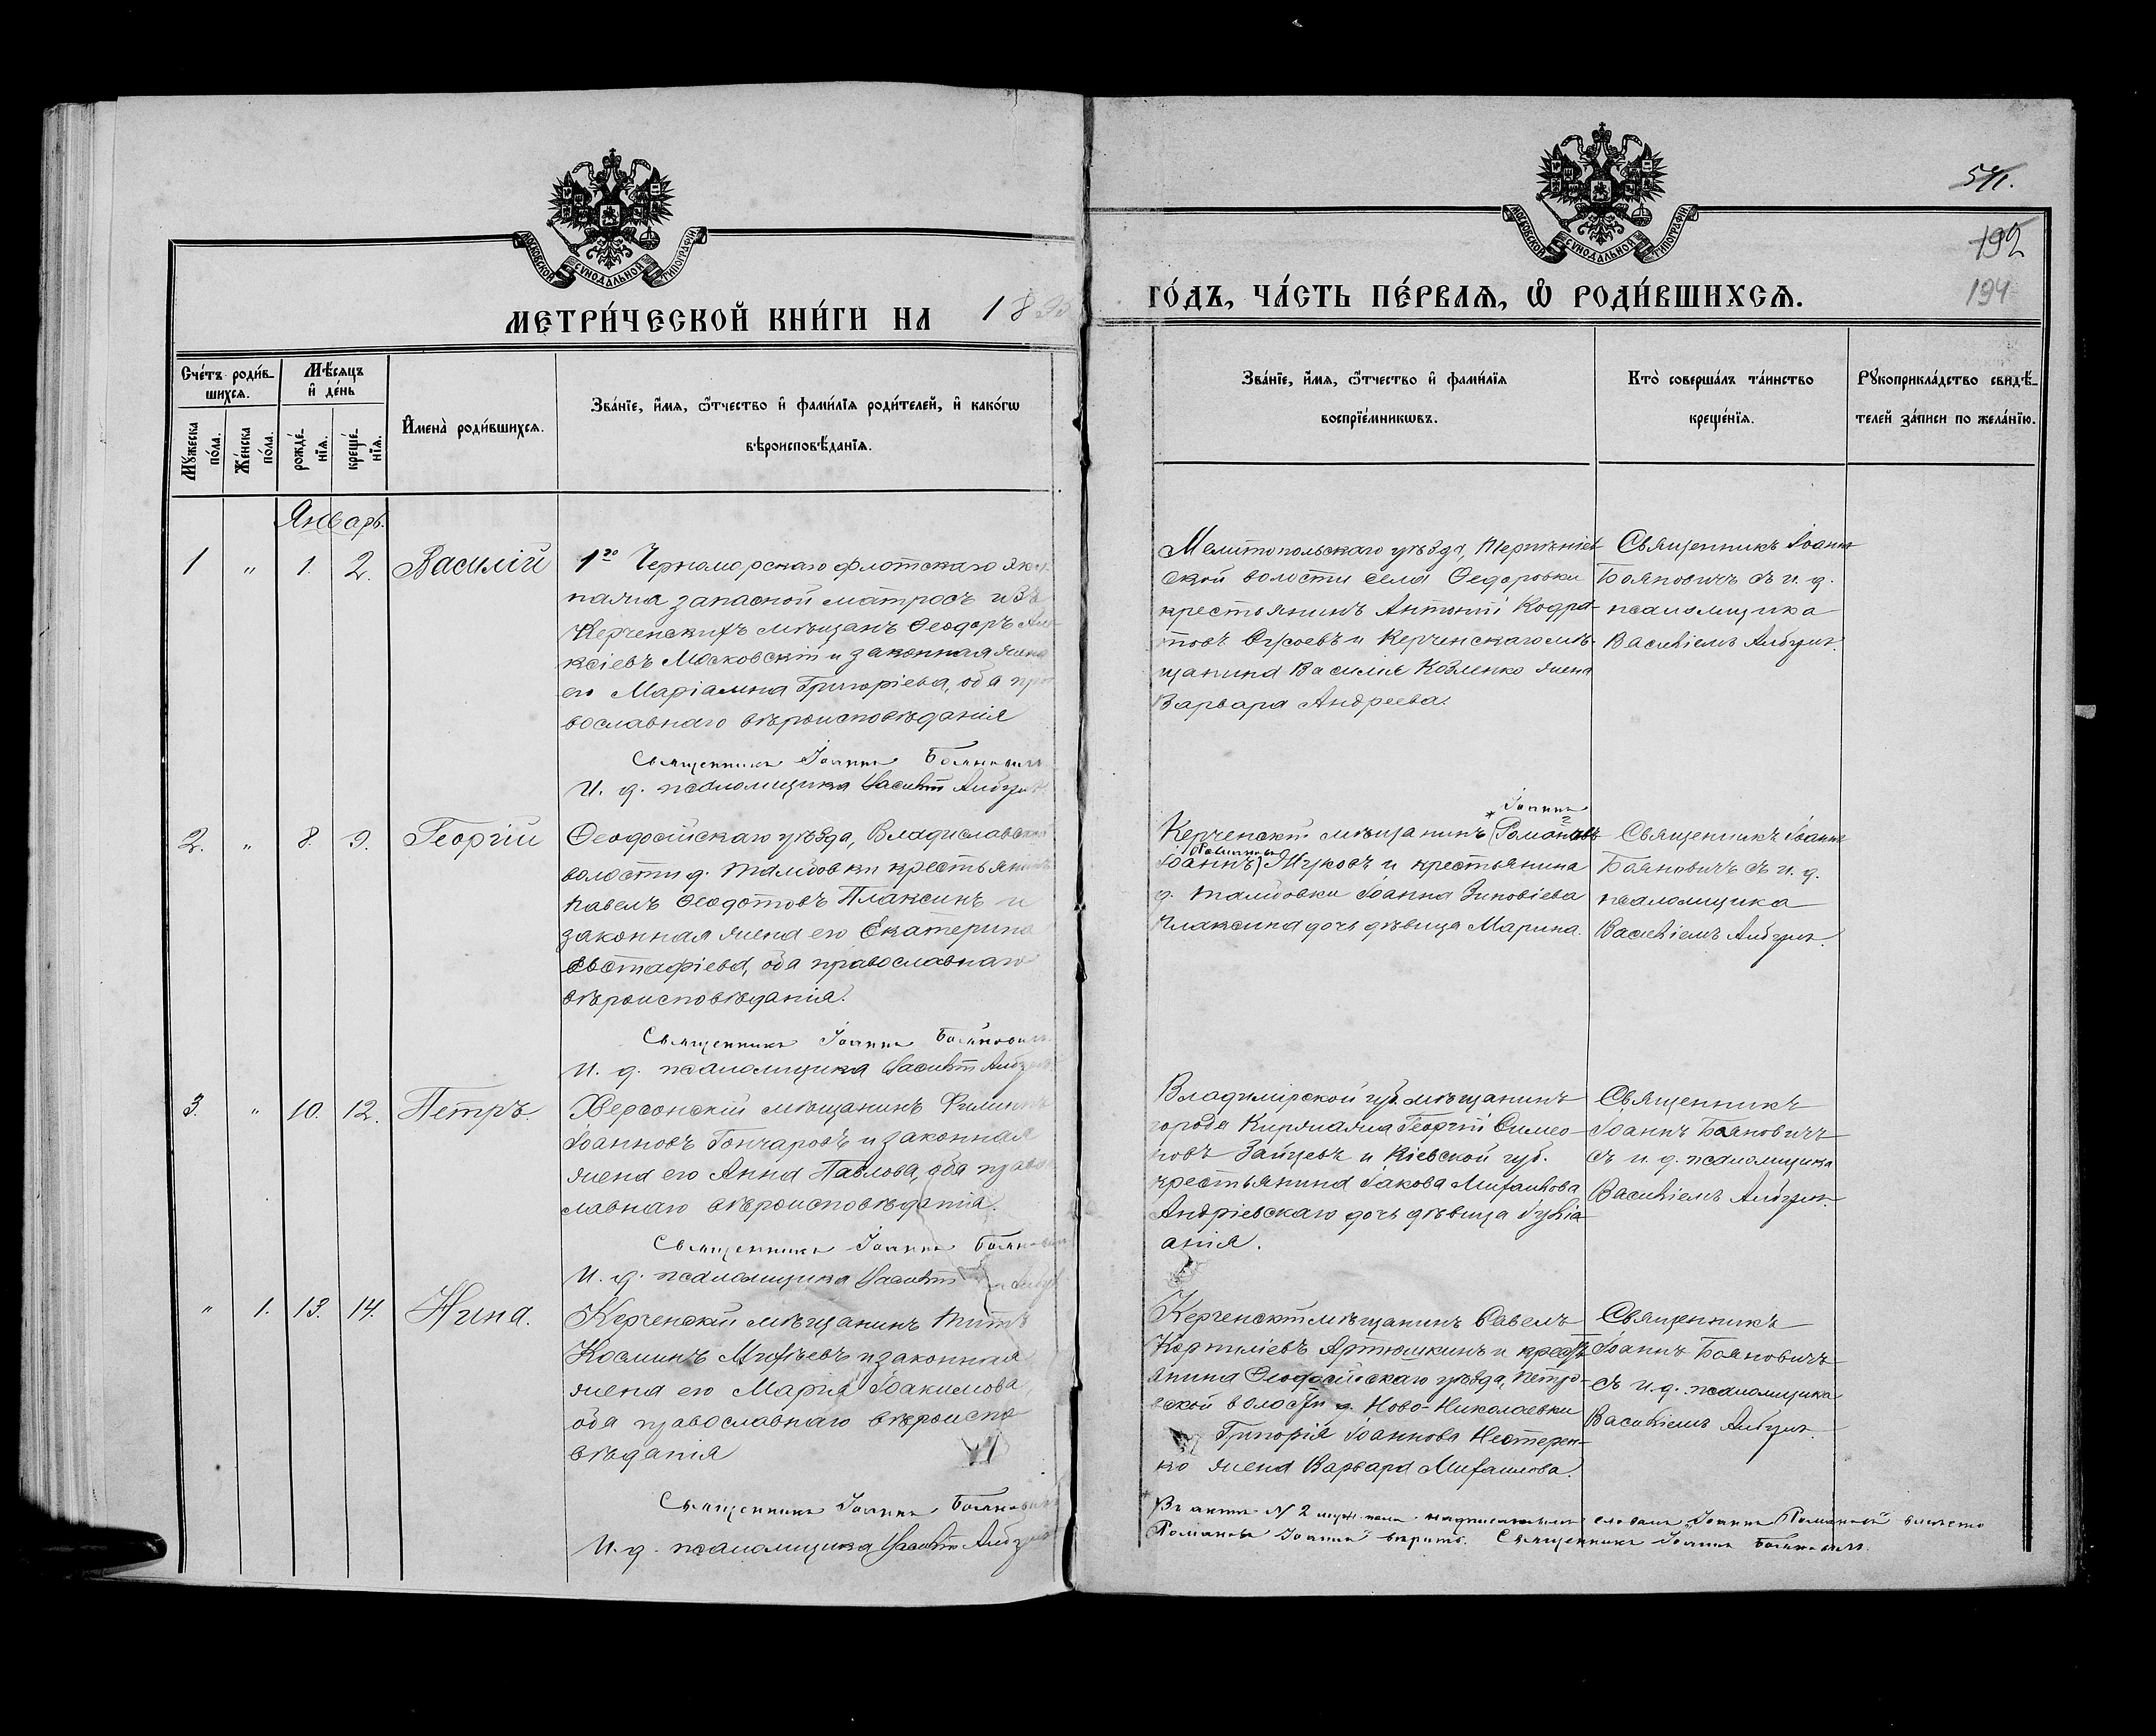 МОСКОВСКОЙ СѴНОДАЛЬНОЙ ТИПОГРАФІИ
МОСКОВСКОЙ СѴНОДАЛЬНОЙ ТИПОГРАФІИ
192
194
МЕТРИ́ЧЕСКОЙ КНИ́ГИ НА 18
ГО́ДЪ, ЧА́СТЬ ПЕ́РВАЯ, Ѡ РОДИ́ВШИХСЯ.
Сче́тъ роди́в-
шихся.
Мѣ́сяцъ
и҆ де́нь
Му́жеска
по́ла.
Же́нска
по́ла.
рожде́-
нія.
креще́-
нія.
И҆мена̀ роди́вшихся.
Зва́ніе, и҆́мя, ѻ҆́тчество и҆ фами́лія роди́телей, и҆ како́гѡ
вѣроисповѣ́данія.
Зва́ніе, и҆́мя, ѻ҆́тчество и҆ фами́лія
воспріе́мникѡвъ.
Кто̀ соверша́лъ та́инство
креще́нія.
Рꙋкоприкла́дство свидѣ́-
телей за́писи по жела́нію.
Январь.
1 " 1. 2. Василій
1го Черноморскаго флотскаго эки-
пажа запасной матросъ изъ
Керченскихъ мѣщанъ Ѳеодоръ Але-
ксіевъ Московскій и законная жена
его Маріамна Григоріева, оба пра-
вославнаго вѣроисповѣданія
Священникъ Іоаннъ Бояновичъ
И. д. псаломщика Василій
Мелитопольскаго уѣзда,
ской волости села Ѳедоровки
крестьянинъ Антоній Кодра-
товъ и Керченскаго мѣ-
щанина Василія Козленко жена
Варвара Андреева.
Священникъ Іоаннъ
Бояновичъ съ и. д.
псаломщика
Василіемъ
2. " 8. 9. Георгій
Ѳеодосійскаго уѣзда, Владиславской
волости д. Тамбовки крестьянинъ
Павелъ Ѳеодотовъ Плаксинъ и
законная жена его Екатерина
Евстафіева, оба православнаго
вѣроисповѣданія.
Священникъ Іоаннъ Бояновичъ
И. д. псаломщика Василій
* Іоаннъ
Керченскій мѣщанинъ (Романовъ
Романовъ
Іоаннъ) Жуковъ и крестьянина
д. Тамбовки Іоанна Зиновіева
Плаксина дочь дѣвица Марина.
Священникъ Іоаннъ
Бояновичъ съ и. д.
псаломщика
Василіемъ
3. " 10. 12. Петръ.
Херсонскій мѣщанинъ Филиппъ
Іоанновъ Гончаровъ и законная
жена его Анна Павлова, оба право-
славнаго вѣроисповѣданія.
Священникъ Іоаннъ Бояновичъ
И. д. псаломщика Василій
Владимірской губ. мѣщанинъ
города Киржача Георгій Симео-
новъ Зайцевъ и Кіевской губ.
крестьянина Іакова Михайлова
Андріевскаго дочь дѣвица Іуліа-
анія.
Священникъ
Іоаннъ Бояновичъ
съ и. д. псаломщика
Василіемъ
" 1. 13. 14. Нина.
Керченскій мѣщанинъ Титъ
Косминъ и законная
жена его Марія Іоакимова,
оба православнаго вѣроиспо-
вѣданія
Священникъ Іоаннъ Бояновичъ
И. д. псаломщика Василій
Керченскій мѣщанинъ Савелъ
Корниліевъ Артюшкинъ и кресть-
янина Ѳеодосійскаго уѣзда, Петро-
вской волости д. Ново-Николаевки
Григорія Іоаннова Нестерен-
ко жена Варвара Михаилова.
Священникъ
Іоаннъ Бояновичъ
съ и. д. псаломщика
Василіемъ
* Въ актѣ N 2 муж. пола надписаннымъ словамъ „Іоаннъ Романовъ" вмѣсто
Романовъ Іоаннъ вѣрить. Священникъ Іоаннъ Бояновичъ.